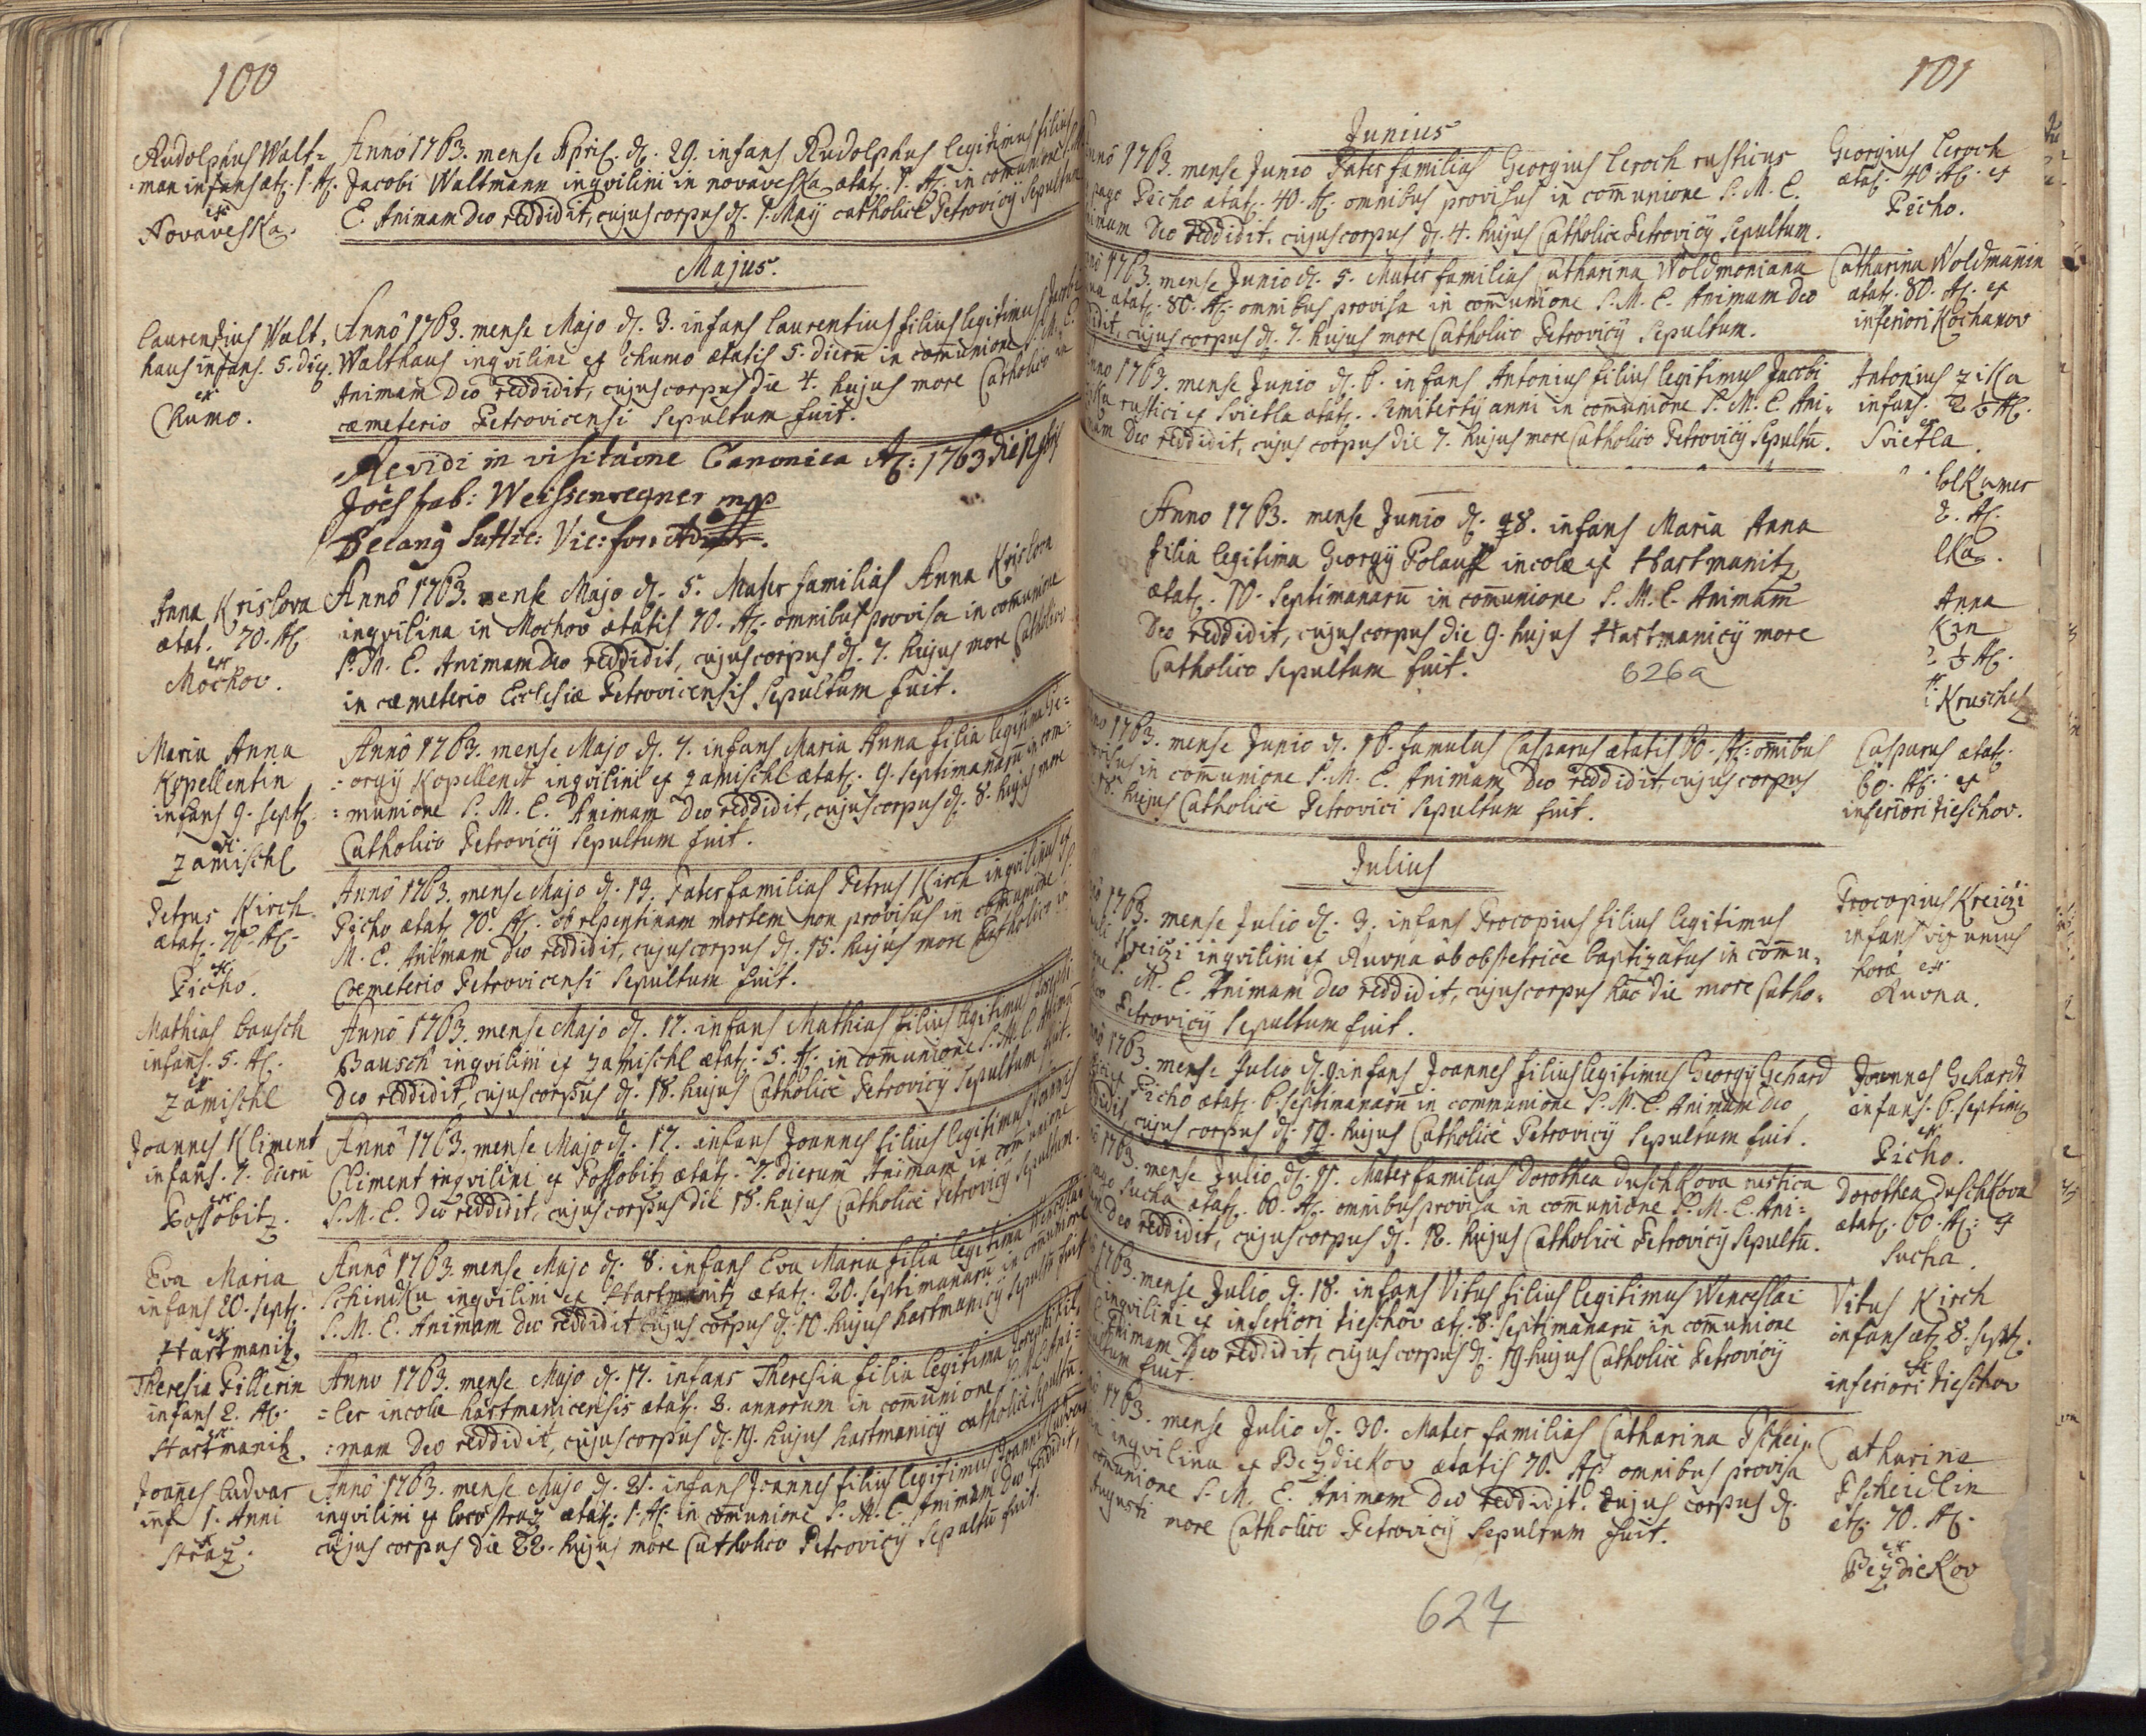 100
Rudolphus Walt=
man infans æt. 1. A.
ex
Novaveska.
Anno 1763. mense April. d. 29. infans Rudolphus legitimus filius
Jacobi Waltmann inqvilini in novaveska ætat. 1. A. in com̄unione S. M.
E. Animam Deo reddidit, cujus corpus d. 1. Maÿ catholicè Petrovicÿ Sepultum
Majus.
Laurentius Walt,
haus infans. 5. die.
ex
Chumo.
Anno 1763. mense Majo d. 3. infans Laurentius filius legitimus
Walthaus inqvilini ex Chumo ætatis 5. dierū in com̄unione S. M. E.
Animam Deo reddidit, cujus corpus die 4. hujus more Catholico in
cæmeterio Petrovicensi Sepultum fuit.
Revidi in visitaõne Canonica A: 1763 die
Joës Weissenregner mpp
Decang Suttic: Vic: for:
Anna Krislova
ætat. 70. A.
ex
Mochov.
Anno 1763. mense Majo d. 5. Mater familias Anna Krislova
inqvilina in Mochov ætatis 70. A. omnibus provisa in com̄unione
S. M. E. Animam Deo reddidit, cujus corpus d. 7. hujus more Catholico
in cæmeterio Ecclesiæ Petrovicensis Sepultum fuit.
Maria Anna
Kopellentin
infans 9. sept.
ex
Zamischl
Anno 1763. mense Majo d. 7. infans Maria Anna filia legitima Ge=
=orgÿ Kopellendt inqvilini ex Zamischl ætat. 9. septimanarū in com=
=munione S. M. E. Animam Deo reddidit, cujus corpus d. 8. hujus more
Catholico Petrovicÿ Sepultum fuit.
Petrus Kirch
ætat. 70. A.
ex
Picho.
Anno 1763. mense Majo d. 13. Pater familias Petrus Kirch inqvilinus ex
Picho ætat. 70. A. ob repentinam mortem non provisus in com̄unione S.
M. E. Animam Deo reddidit, cujus corpus d. 15. hujus more Catholico in
Cœmeterio Petrovicensi Sepultum fuit.
Mathias Bausch
infans. 5. A.
ex
Zamischl
Anno 1763. mense Majo d. 17. infans Mathias filius legitimus
Bausch inqvilini ex Zamischl ætat. 5. A. in com̄unione S. M. E. Animā
Deo reddidit, cujus corpus d. 18. hujus Catholicè Petrovicÿ Sepultum fuit.
Joannes Kliment
infans. 7. dierū
ex
Possobitz.
Anno 1763. mense Majo d. 17. infans Joannes filius legitimus Joannis
Climent inqvilini ex Possobitz ætat. 7. dierum Animam in com̄unione
S. M. E. Deo reddidit, cujus corpus die 18. hujus Catholicè Petrovicÿ Sepultum.
Eva Maria
infans 20. sept.
ex
Hartmanitz
Anno 1763. mense Majo d. 8. infans Eva Maria filia legitima Wenceslai
Schindla inqvilini ex Hartmanitz ætat. 20. septimanarū in com̄unione
S. M. E. Animam Deo reddidit cujus corpus d. 10. hujus hartmanicÿ Sepultū fuit
Theresia Pillerin
infans 2. A.
ex
Hartmanitz.
Anno 1763. mense Majo d. 17. infans Theresia filia legitima Josephi Pil,
=ler incolæ hartmanicensis ætat. 3. annorum in com̄unione S. M. E. Ani=
=mam Deo reddidit, cujus corpus d. 19. hujus hartmanicÿ catholicè Sepultū.
Joannes Cudvar
inf 1. Anni
ex
straz.
Anno 1763. mense Majo d. 21. infans Joannes filius legitimus Joannis
inqvilini ex loco straz ætat. 1. A. in com̄unione S. M. E. Animam Deo reddidit,
cujus corpus die 22. hujus more Catholico Petrovicÿ Sepultū fuit.
101
Junius
Anno 1763. mense Junio Pater familias Georgius Leroch rusticus
pago Picho ætat. 40. A. omnibus provisus in com̄unione S. M. E.
Animam Deo reddidit. cujus corpus d. 4. hujus Catholicè Petrovicÿ Sepultum.
Georgius Leroch
ætat. 40. A. ex
Picho.
1763. mense Junio d. 5. Mater familias Catharina Woldmoniana
ætat. 80. A. omnibus provisa in com̄unione S. M. E. Animam Deo
cujus corpus d. 7. hujus more Catholico Petrovicÿ Sepultum.
Catharina Woldmanin
ætat. 80. A. ex
inferiori Kochanov
Anno 1763. mense Junio d. 6. infans Antonius filius legitimus Jacobi
rustici ex Svietla ætat. Semitertÿ anni in com̄unione S. M. E. Ani=
mam Deo reddidit, cujus corpus die 7. hujus more Catholico Petrovicÿ Sepultū.
Antonius Ziska
infans. 2 ½ A.
ex
Svietla.
Anno 1763. mense Junio d. 8. infans Maria Anna
filia legitima Georgÿ Polauff incolæ ex Hartmanitz
ætat. 10. Septimanarū in com̄unione S. M. E. Animam
Deo reddidit, cujus corpus die 9. hujus Hartmanicÿ more
Catholico Sepultum fuit.
626a
2. A.
Anna
Kin
½ A.
Kruschetz
1763. mense Junio d. 16. famulus Casparus ætatis 60. A. omnibus
in com̄unione S. M. E. Animam Deo reddidit, cujus corpus
18. hujus Catholicè Petrovici Sepultum fuit.
Casparus ætat.
60. A. ex
inferiori tieschov.
Julius
1763. mense Julio d. 3. infans Procopius filius legitimus
Kreiczi inqvilini ex Ruvna ab obstetrice baptizatus in com̄u,
M. E. Animam Deo reddidit, cujus corpus hac die more Catho=
Petrovicÿ Sepultum fuit.
Procopius Kreiczi
infans vix unius
horæ ex
Ruvna.
1763. mense Julio d. 9 infans Joannes filius legitimus Georgÿ Gehard
Picho ætat. 6. septimanarū in communione S. M. E. Animam Deo
cujus corpus d. 19. hujus Catholicè Petrovicÿ Sepultum fuit.
Joannes Gehardt
infans. 6. septim
ex
Picho.
1763. mense Julio d. 11. Mater familias Dorothea Duschkova rustica
pago Sucha ætat. 60. A. omnibus provisa in com̄unione S. M. E. Ani=
Deo reddidit, cujus corpus d. 12. hujus Catholicè Petrovicÿ Sepultū.
Dorothea Duschkova
ætat. 60. A: ex
Sucha.
1763. mense Julio d. 18. infans Vitus filius legitimus Wenceslai
inqvilini ex inferiori tieschov æt. 8. septimanarū in com̄unione
Animam Deo reddidit, cujus corpus d. 19 hujus Catholicè Petrovicÿ
fuit.
Vitus Kirch
infans æt. 8. sept.
ex
inferiori tieschov
1763. mense Julio d. 30. Mater familias Catharina Tschei,
inqvilina ex Bezdiekov ætatis 70. A. omnibus provisa
comunione S. M. E. Animam Deo reddidit. Cujus corpus d.
Augusti more Catholico Petrovicÿ Sepultum fuit.
Catharina
Tscheidlin
æt. 70. A.
ex
Bezdiekov
627